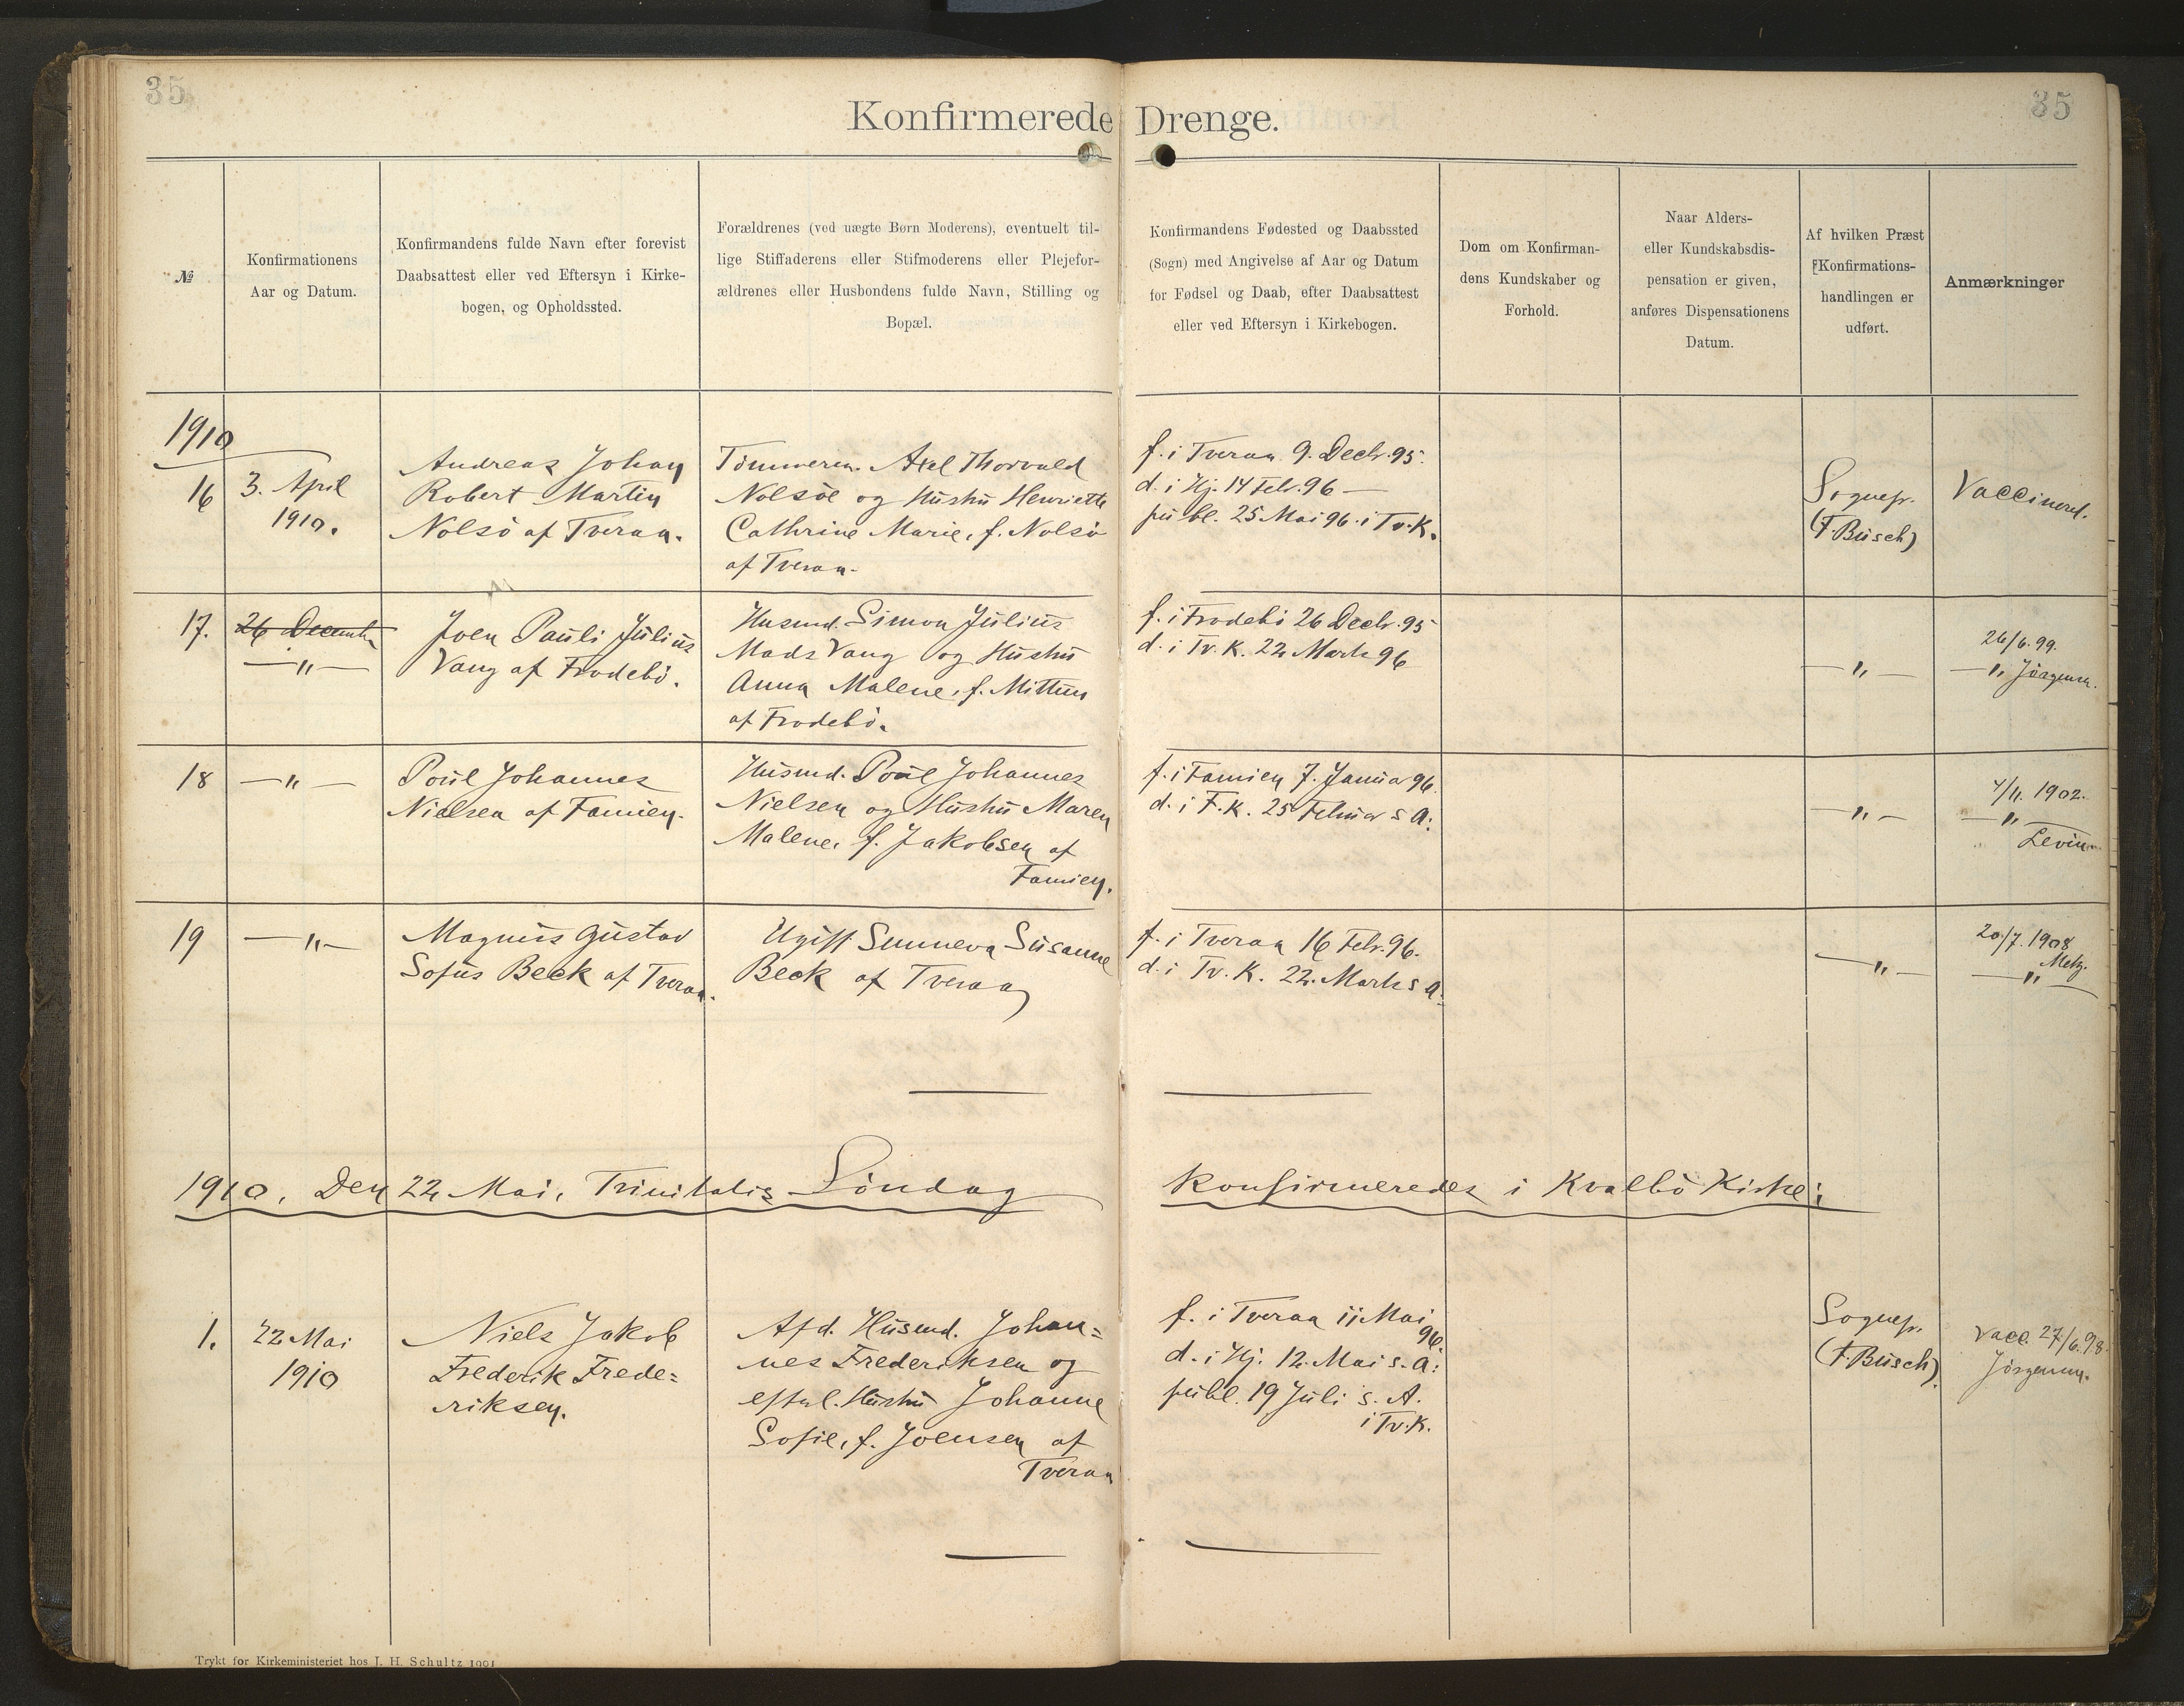 35
35
Konfirmerede Drenge.
№
Konfirmationens
Aar og Datum.
Konfirmandens fulde Navn efter forevist
Daabsattest eller ved Eftersyn i Kirke-
bogen, og Opholdssted.
Forældrenes (ved uægte Børn Moderens), eventuelt til-
lige Stiffaderens eller Stifmoderens eller Plejefor-
ældrenes eller Husbondens fulde Navn, Stilling og
Bopæl.
Konfirmandens Fødested og Daabssted
(Sogn) med Angivelse af Aar og Datum
for Fødsel og Daab, efter Daabsattest
eller ved Eftersyn i Kirkebogen.
Dom om Konfirman-
dens Kundskaber og
Forhold.
Naar Alders-
eller Kundskabsdis-
pensation er given,
anføres Dispensationens
Datum.
Af hvilken Præst
Konfirmations-
handlingen er
udført.
Anmærkninger
1910
16
3. April
1910.
Andreas Johan
Robert Martin
Nolsö af Tveraa.
Tömmerm. Axel Thorvald
Nolsöe og Hustru Henriette
Cathrine Marie, f. Nolsö
af Tveraa.
f. i Tveraa 9. Decbr. 95.
d. i Hj. 14 Febr. 96 —
publ. 25 Mai 96. i Tv. K.
Sognepr.
(F. Busch)
Vaccineret.
17.
26 December
— " —
Joen Pauli Julius
Vang af Frodebö.
Husmd. Simon Julius
Mads Vang og Hustru
Anna Malene, f. Mittun
af Frodebö.
f. i Frodebö 26 Decbr. 95
d. i Tv. K. 22 Marts 96
— " —
26/6. 99.
— " Jörgensen.
18
— " —
Poul Johannes
Nielsen af Famien.
Husmd. Poul Johannes
Nielsen og Hustru Maren
Malene, f. Jakobsen af
Famien.
f. i Famien 7. Januar 96.
d. i F. K. 25 Februar s A:
— " —
4/11. 1902.
— " —
Levin
19
— " —
Magnus Gustav
Sofus Beck af Tveraa.
Ugift Sunneva Susanne
Beck af Tveraa
f. i Tveraa 16 Febr. 96.
d. i Tv. K. 22. Marts s A:
— " —
20/7. 1908
Metz.
— " —
1910. Den 22 Mai, Trinitatis Söndag konfirmeredes i Kvalbö Kirke:
1.
22 Mai
1910
Niels Jakob
Frederik Frede=
riksen.
Afd. Husmd. Johan=
nes Frederiksen og
efterl. Hustru Johanne
Sofie, f. Joensen af
Tveraa
f. i Tveraa 11 Mai
96.
d. i Hj. 12. Mai s. A:
publ. 19 Juli s. A.
i Tv. K.
Sognepr.
(F. Busch).
Vacc. 27/6. 98.
Jörgensen.
Trykt for Kirkeministeriet hos J. H. Schultz 1901